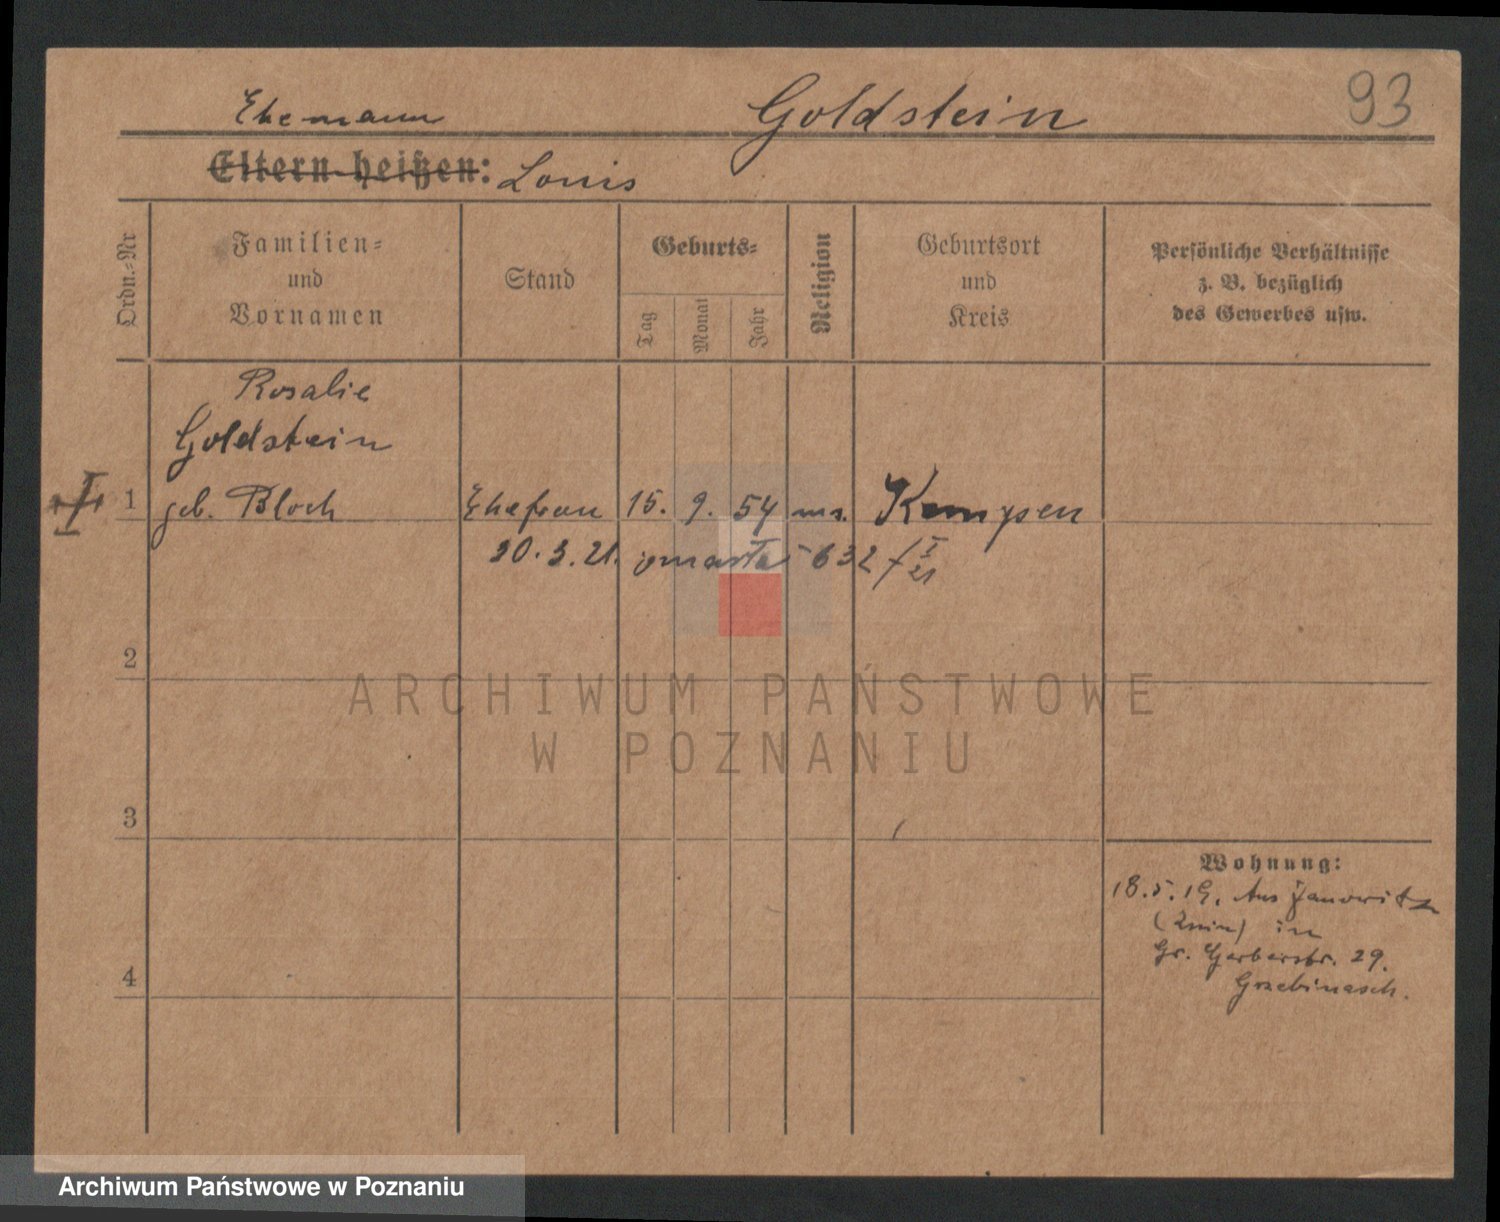 93
Ehemann Goldstein
Eltern heißen: Louis
Ordn.-Nr
Familien-
und
Vornamen
Stand
Geburts-
Tag Monat Jahr
Religion
Geburtsort
und
Kreis
Persönliche Verhältnisse
z. B. bezüglich
des Gewerbes usw.
Rosalie
Goldstein
1 geb. Bloch Ehefrau 15. 9. 54 mos. Kempen
30.3.21. zmarła 632
2
ARCHIWUM PAŃSTWOWE
W POZNANIU
3
Wohnung:
18.5.19. Aus Janowitz
(Znin) in
4 Gr. Gerberstr. 29.
Grzebinasch.
Archiwum Państwowe w Poznaniu